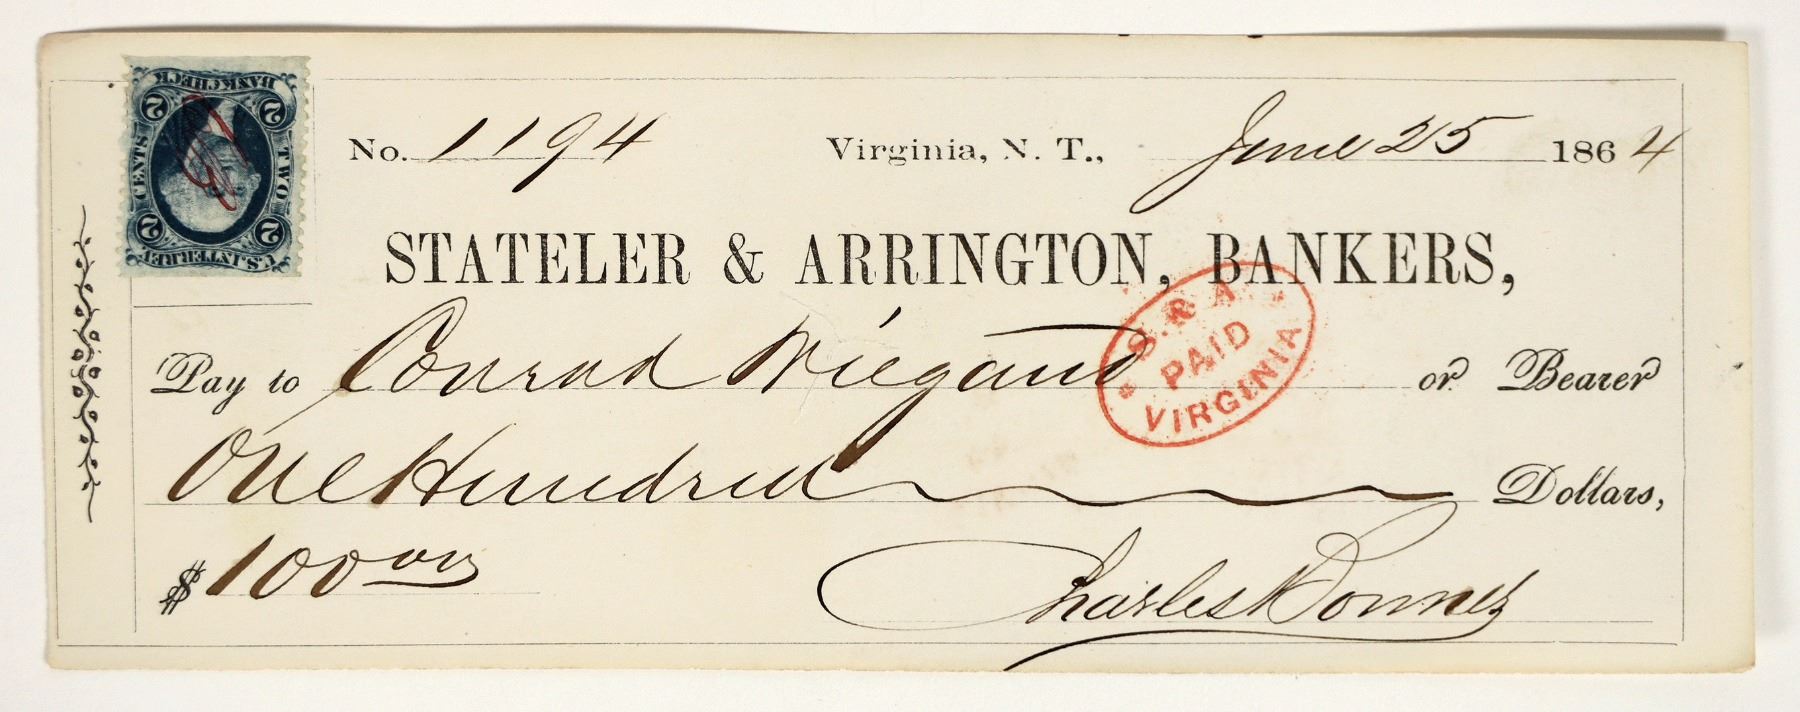 BANK CHECK
2 2
CENTS TWO
2 2
U.S. INTER. REV.
No. 1194 Virginia, N. T., June 25 1864
STATELER & ARRINGTON, BANKERS,
Pay to Conrad Wiegand or Bearer
S. & A.
PAID
VIRGINIA
One Hundred Dollars,
$100 00
Charles Bonner